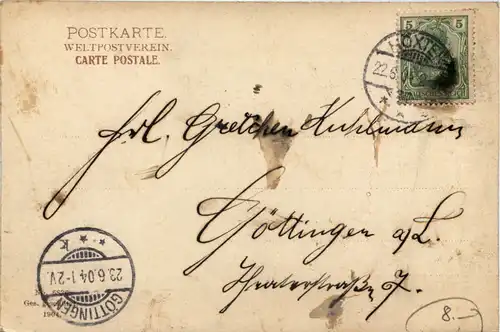 POSTKARTE.
WELTPOSTVEREIN.
CARTE POSTALE.
5 5
HÖXTER
22.6
Frl. Gretchen Kuhlmann
Göttingen a/L.
Theaterstraße 7.
GÖTTINGEN
23.6.04.1-2V.
* * K
Ges.
1904
8.—